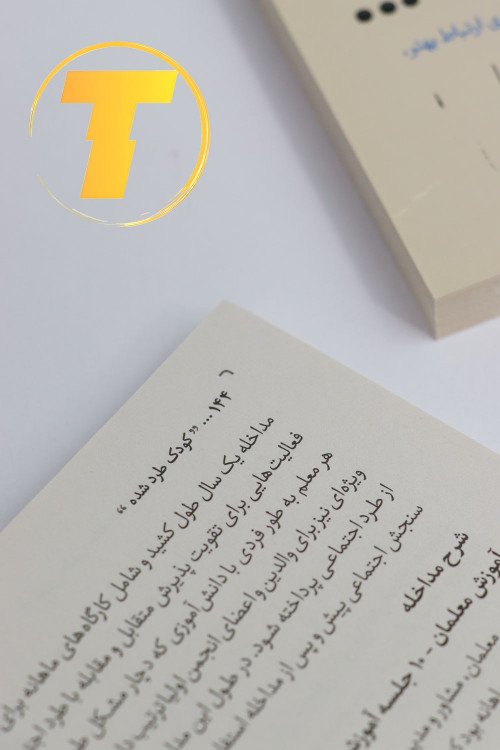 T
ی ارتباط بهتر،
۱۴۴ ... «کودک طرد شده»
مداخله یک سال طول کشید و شامل کارگاه‌های ماهانه برای
فعالیت‌هایی برای تقویت پذیرش متقابل و مقابله با طرد
هر معلم به طور فردی با دانش‌آموزی که دچار مشکل
ویژه‌ای نیز برای والدین و اعضای انجمن اولیا ترتیب
از طرد اجتماعی پرداخته شود. در طول این
سنجش اجتماعی پیش و پس از مداخله
شرح مداخله
آموزش معلمان - ۱۰ جلسه
معلمان، مشاور و